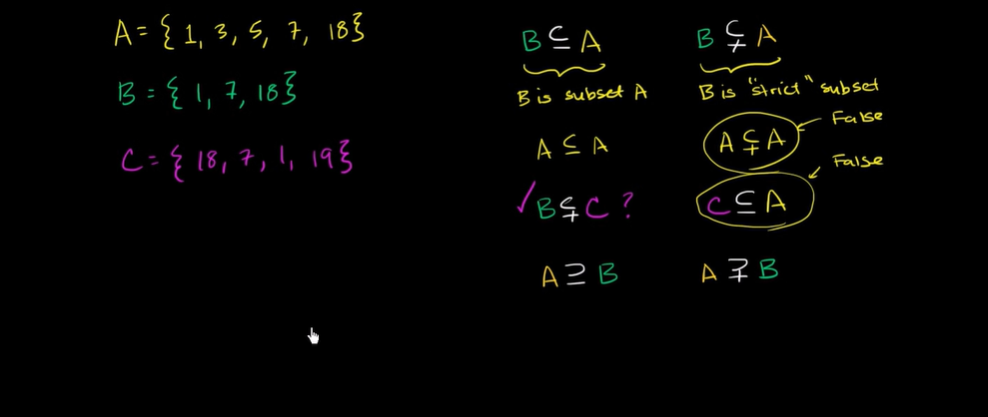 A = { 1, 3, 5, 7, 18}
B = { 1, 7, 18}
C = { 18, 7, 1, 19}
B ⊆ A
B is subset A
A ⊆ A
B ⊊ C ?
A ⊇ B
B ⊊ A
B is "strict" subset
A ⊊ A
False
C ⊆ A
False
A ⊋ B